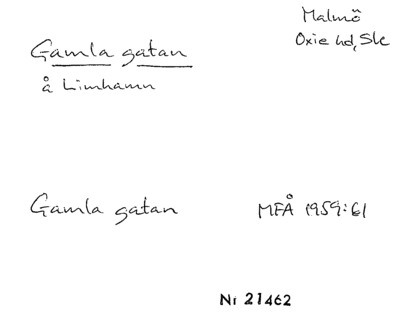 Malmö
Oxie hd, Sk
Gamla gatan
å Limhamn
Gamla gatan MFÅ 1959:61
Nr 21462